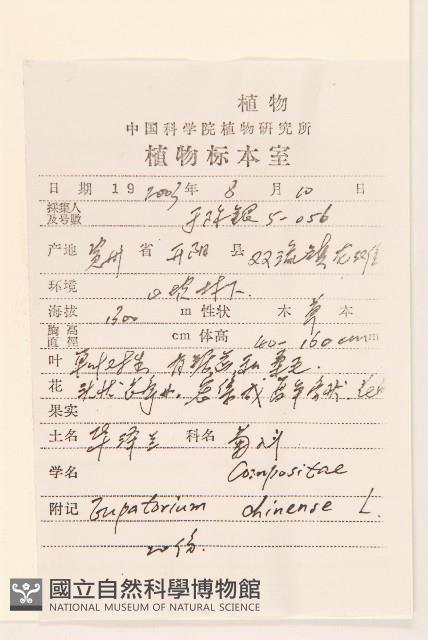 植物
中国科学院植物研究所
植物标本室
日期 19 2003年 8 月 10 日
採集人
及号数 5-056
产地 贵州 省 开阳 县 双流镇
环境 山坡林下
海拔 1300 m 性状 木 草 本
胸高
直徑 cm 体高 40-160cm m
叶 单叶对生
花
果实
土名 华泽兰 科名 菊科
学名 Compositae
附记 Eupatorium chinense L.
20份.
國立自然科學博物館
NATIONAL MUSEUM OF NATURAL SCIENCE